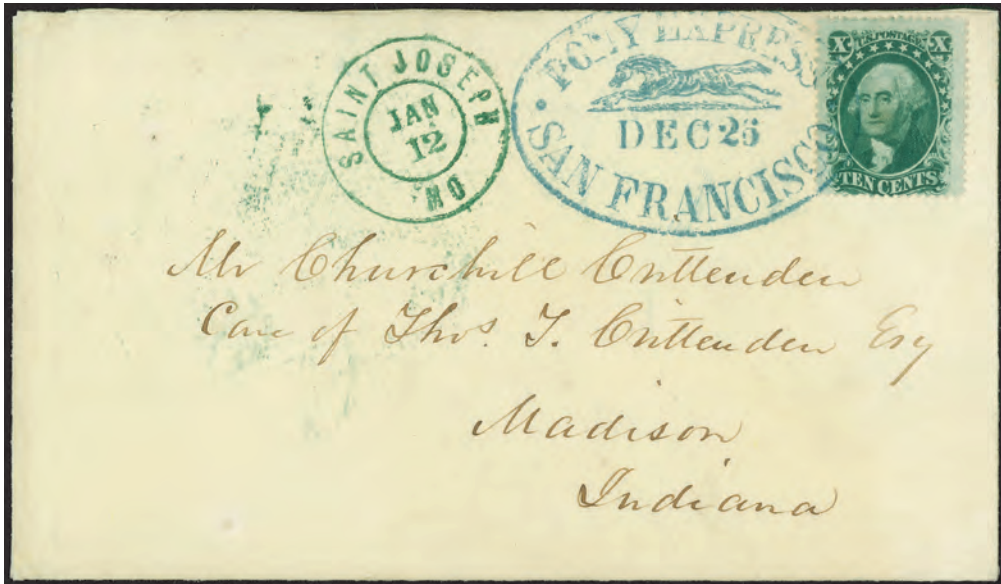 SAINT JOSEPH
JAN
12
MO
PONY EXPRESS
DEC 26
SAN FRANCISCO
U.S. POSTAGE
X X
TEN CENTS
Mr Churchill Crittenden
Care of Thos. T. Crittenden Esq
Madison
Indiana